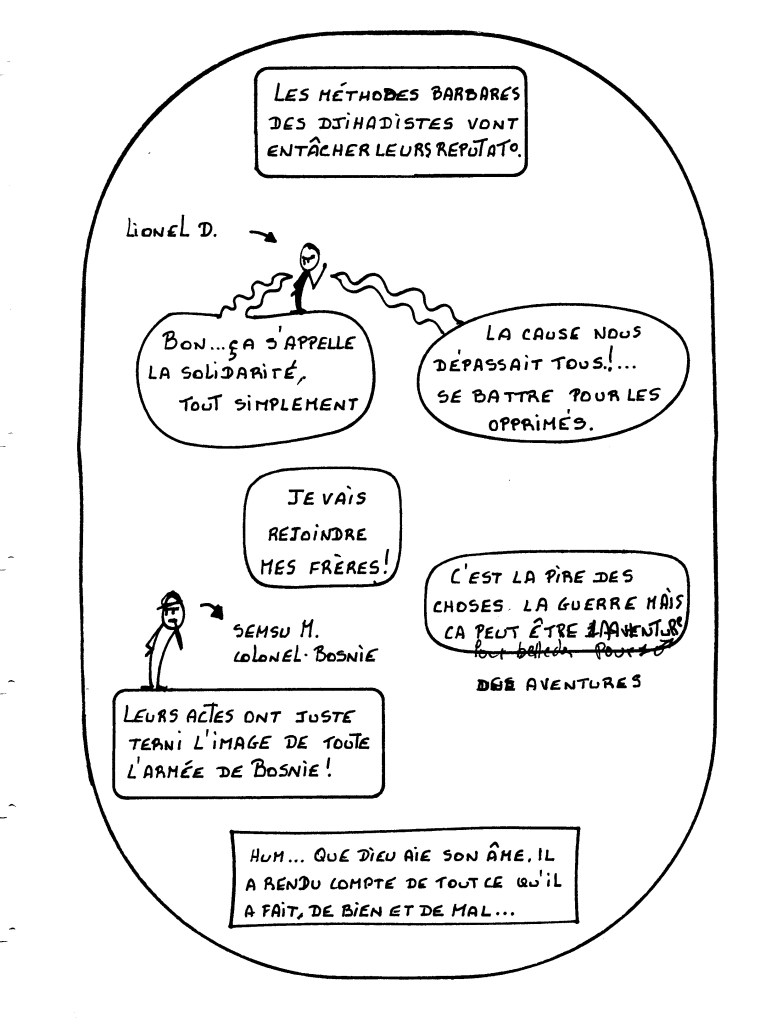 LES MÉTHODES BARBARES
DES DJIHADISTES VONT
ENTÂCHER LEURS REPUTAT°.
LIONEL D.
BON...ÇA S'APPELLE
LA SOLIDARITÉ,
TOUT SIMPLEMENT
LA CAUSE NOUS
DÉPASSAIT TOUS!...
SE BATTRE POUR LES
OPPRIMÉS.
JE VAIS
REJOINDRE
MES FRÈRES!
C'EST LA PIRE DES
CHOSES LA GUERRE MAIS
CA PEUT ÊTRE
DES AVENTURES
SEMSU M.
COLONEL-BOSNIE
LEURS ACTES ONT JUSTE
TERNI L'IMAGE DE TOUTE
L'ARMÉE DE BOSNIE!
HUM... QUE DIEU AIE SON ÂME, IL
A RENDU COMPTE DE TOUT CE QU'IL
A FAIT, DE BIEN ET DE MAL...